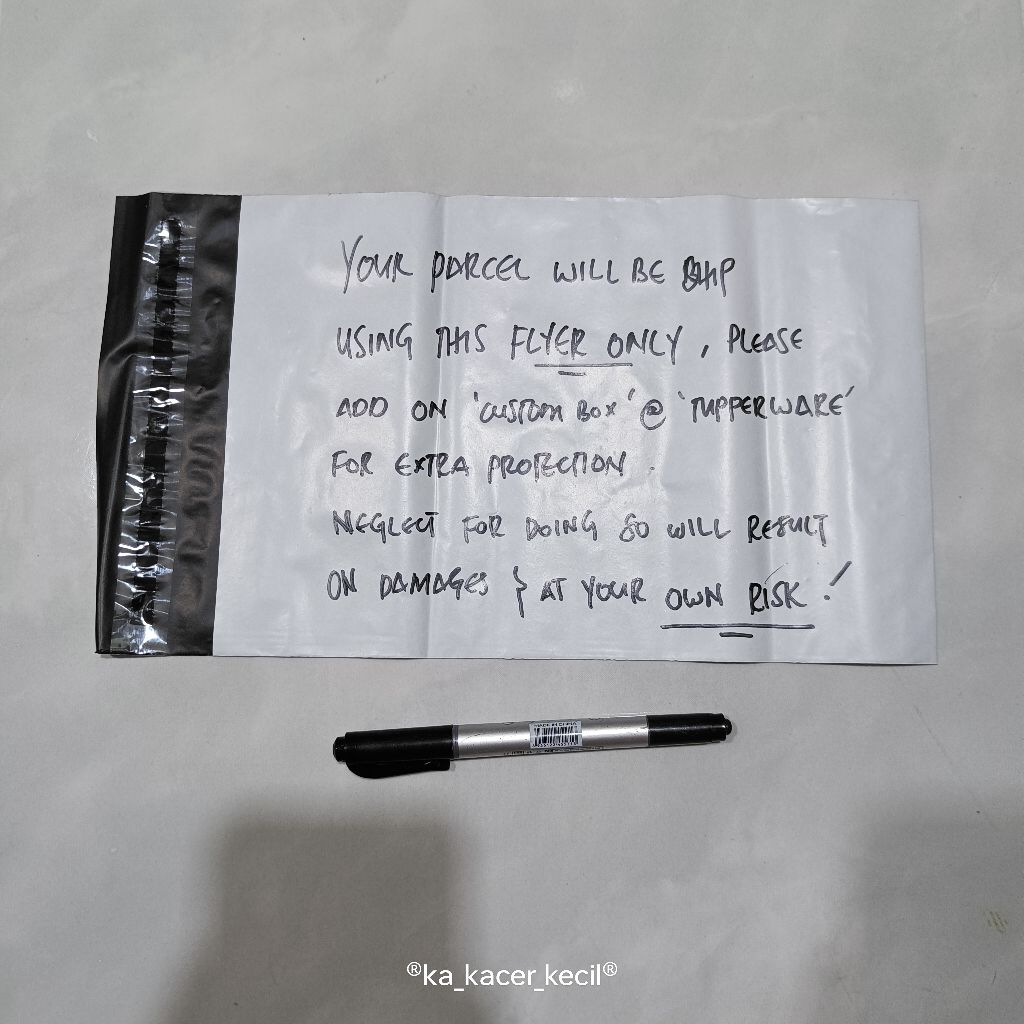 YOUR PARCEL WILL BE SHIP
USING THIS FLYER ONLY, PLEASE
ADD ON 'CUSTOM BOX' @ 'TUPPERWARE'
FOR EXTRA PROTECTION.
NEGLECT FOR DOING SO WILL RESULT
ON DAMAGES } AT YOUR OWN RISK!
MADE IN CHINA
®ka_kacer_kecil®